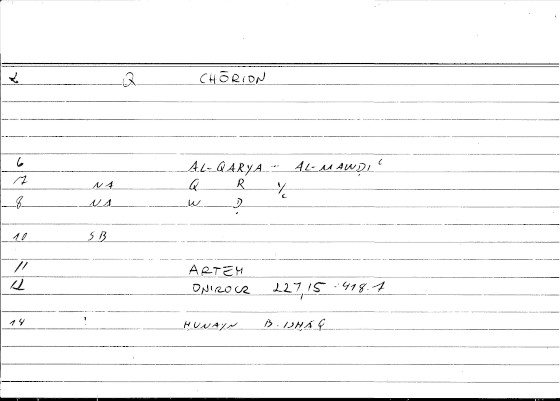 2 Q CHŌRION
6 AL-QARYA - AL-MAWḌIʿ
7 NA Q R Y/
8 NA W Ḍ
10 SB
11 ARTEM
12 ONIROCR 227,15 - 418.7
14 HUNAYN B. ISḤĀQ